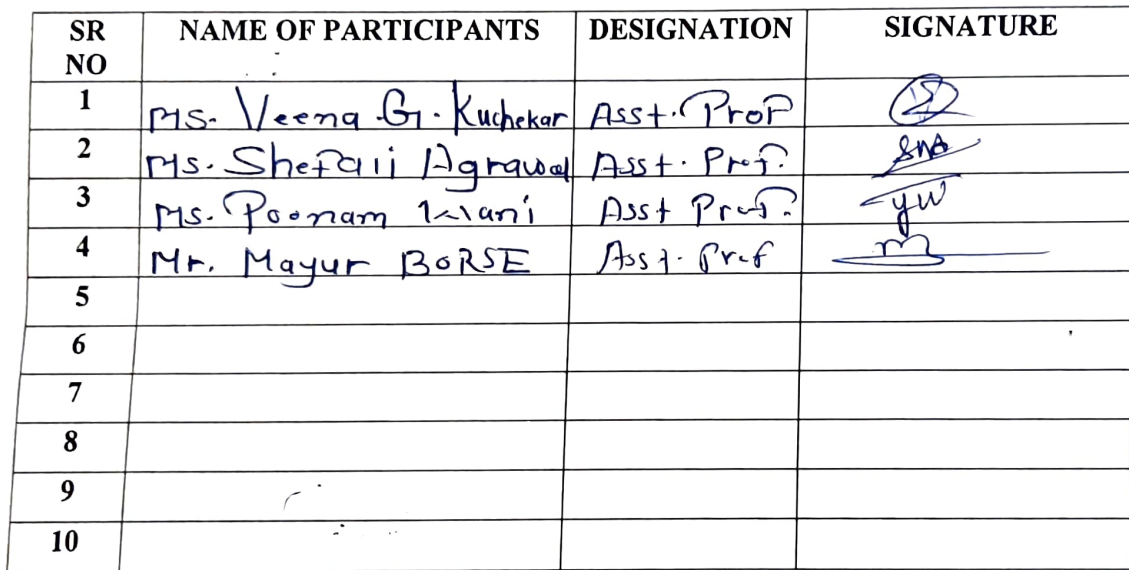 SR NO NAME OF PARTICIPANTS DESIGNATION SIGNATURE
1 Ms. Veena G. Kuchekar Asst. Prof
2 Ms. Shefali Agrawal Asst. Prof.
3 Ms. Poonam Asst Prof.
4 Mr. Mayur BORSE Asst. Prof
5
6
7
8
9
10